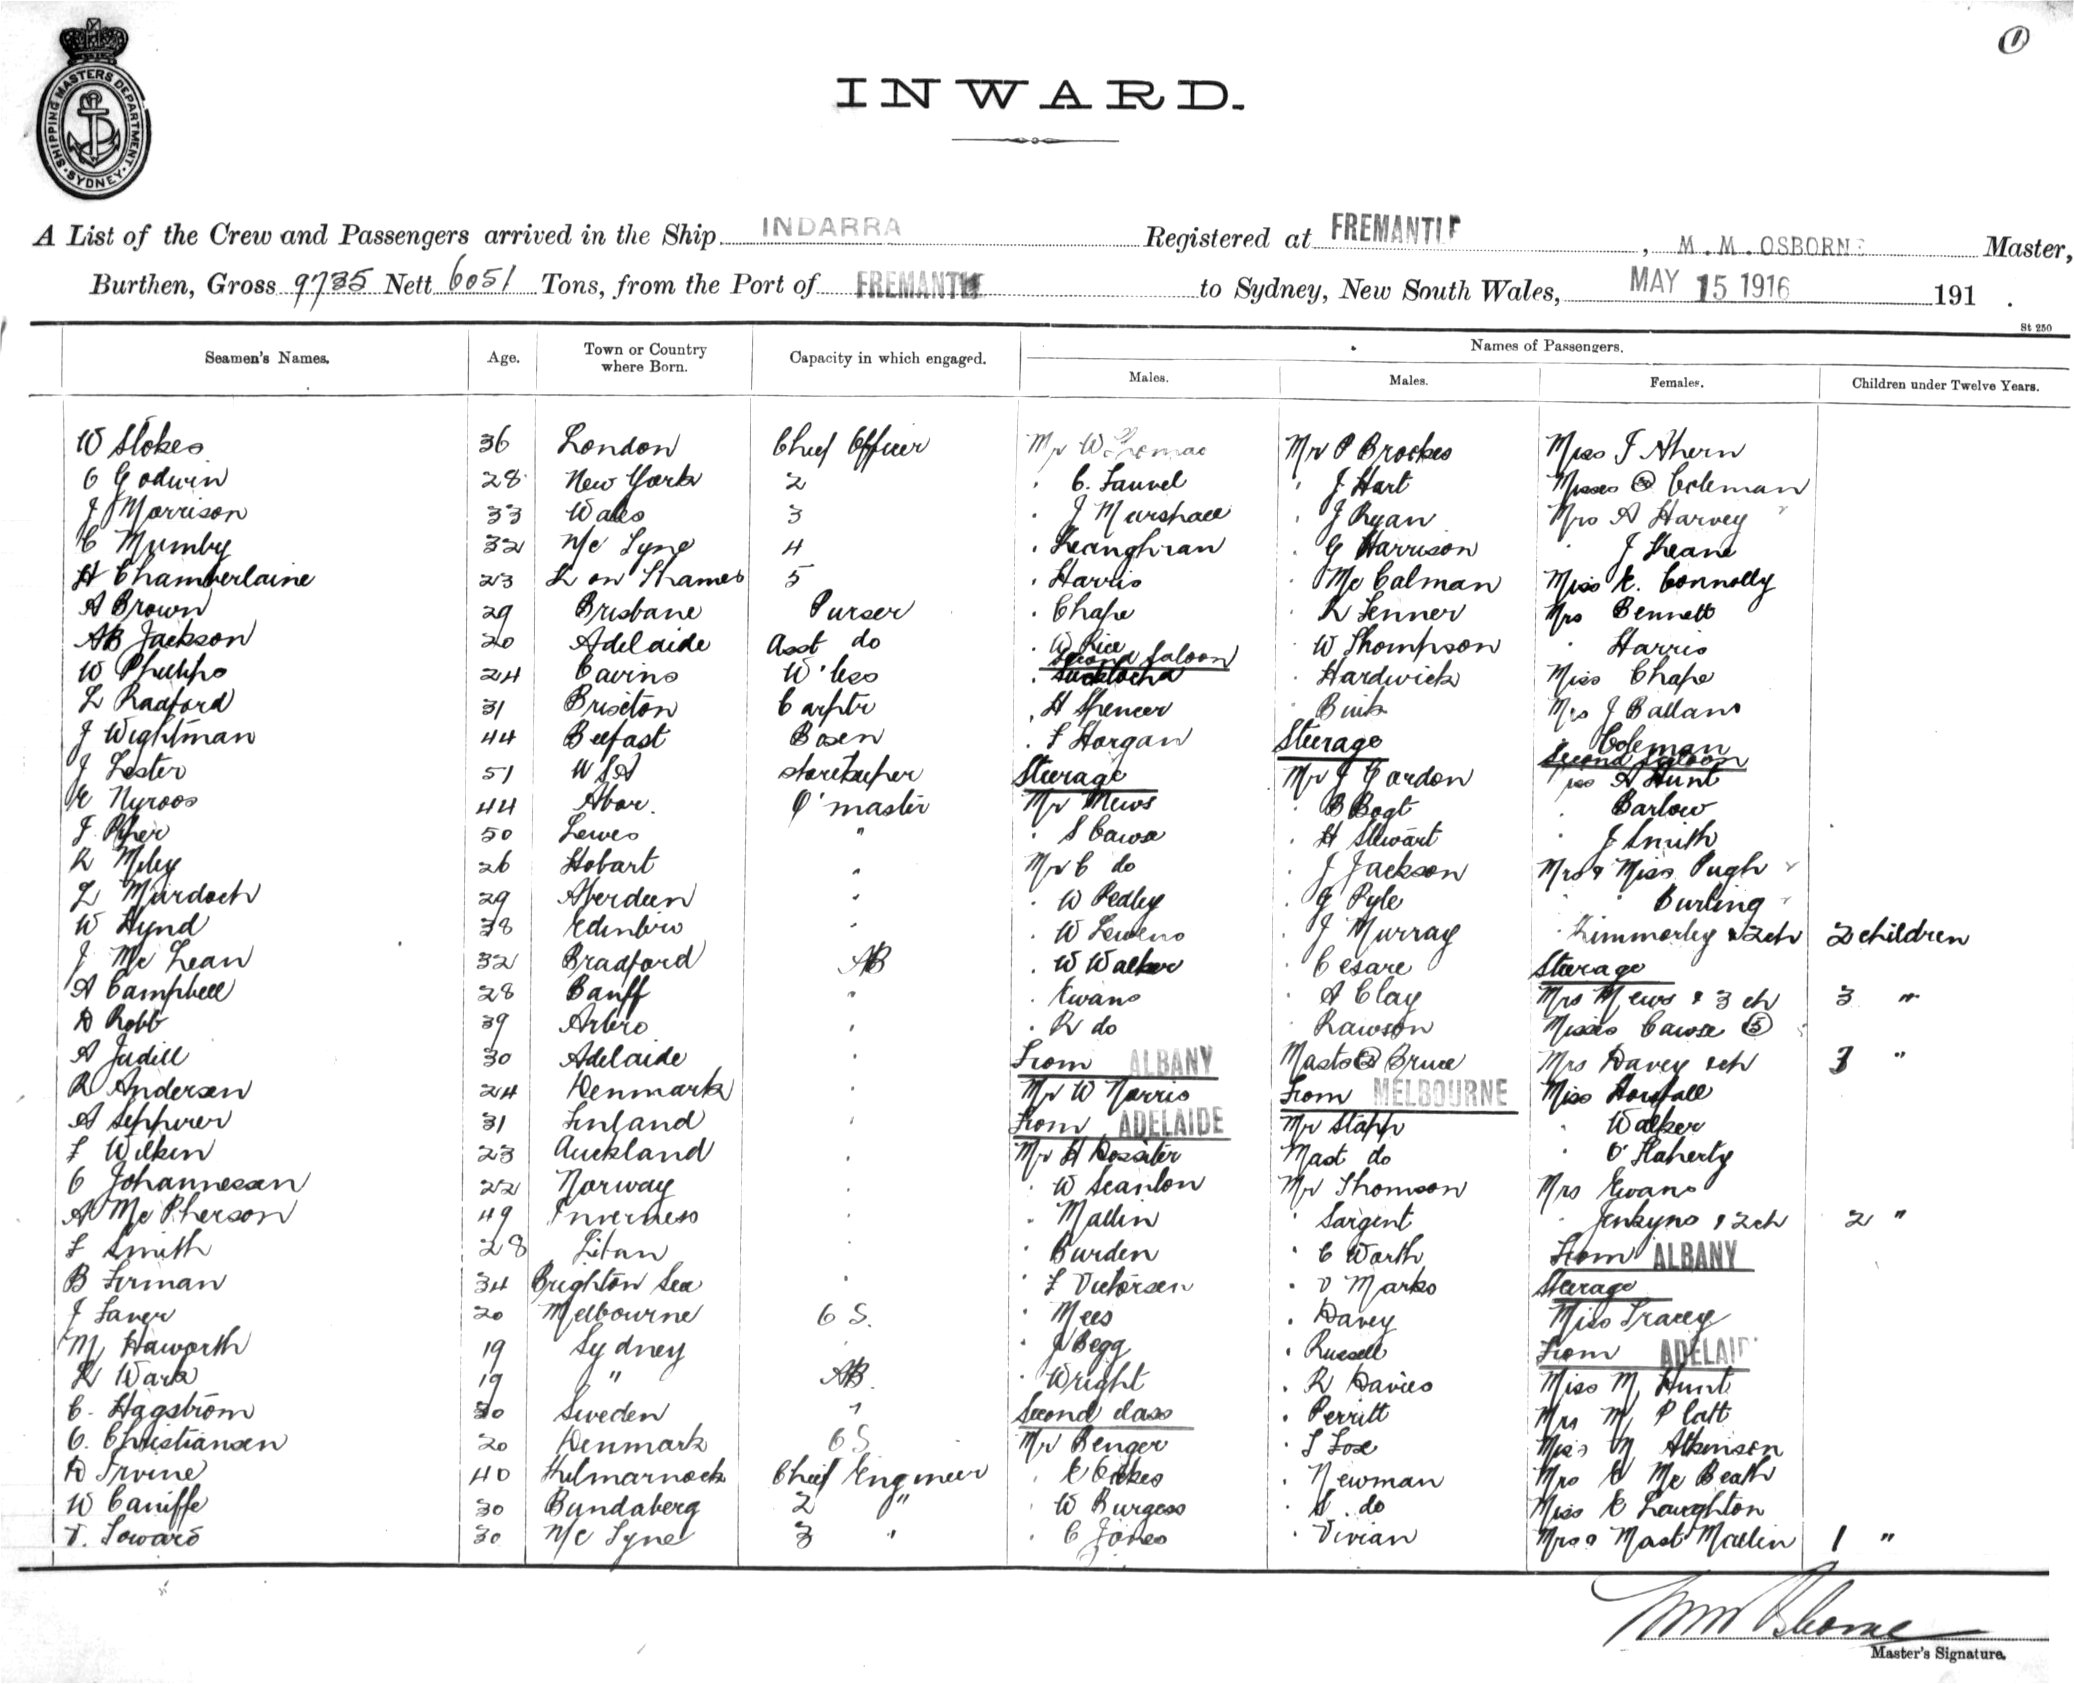 ①
SHIPPING MASTERS DEPARTMENT. SYDNEY.
INWARD.
A List of the Crew and Passengers arrived in the Ship INDARRA Registered at FREMANTLE, M. M. OSBORNE Master,
Burthen, Gross 9735 Nett 6051 Tons, from the Port of FREMANTLE to Sydney, New South Wales, MAY 15 1916 191 .
St 250
Seamen's Names. Age. Town or Country where Born. Capacity in which engaged. Names of Passengers.
Males. Males. Females. Children under Twelve Years.
W Stokes 36 London Chief Officer Mr W Thomas Mr P Brookes Miss F Ahern
C Godwin 28 New York 2 " C. Fauvel " J Hart Misses Coleman
J Morrison 33 Wales 3 " J Marshall " J Ryan Mrs A Harvey
C Mumby 32 N/c Tyne 4 " " G Harrison " J Keane
H Chamberlaine 23 K on Thames 5 " Harris " McCalman Miss K. Connolly
A Brown 29 Brisbane Purser " Chape " R Fenner Mrs Bennett
AB Jackson 20 Adelaide Asst do " W Rice " W Thompson " Harris
W Phillips 24 W'less Second Saloon " Hardwick Miss Chape
L Radford 31 Brixton Carptr " H Spencer " Mrs J Ballans
J Wightman 44 Belfast Bosen " F Horgan Steerage " Coleman
J Lester 51 USA Storekeeper Steerage Mr J Gordon Second Saloon
Miss A Hunt
E Nyroos 44 Abor. Q'master Mr Mews " B Bogt " Barlow
J. Piper 50 Lewes " " S Cawse " H Stewart " J Smith
R Miley 26 Hobart " Mr C do " J Jackson Mrs & Miss Pugh
L Murdoch 29 Aberdeen " " W Pedley " G Pyle " " Burling
W Hynd 38 Edinbro " " W Lewens " J Murray " Kimmorley & 2ch 2 children
J McLean 32 Bradford AB " W Walker " Cesare Steerage
A Campbell 28 Banff " " Evans " A Clay Mrs Mews & 3 ch 3 "
D Robb 39 Arbro " " R do " Rawson Misses Cawse ⑤
A Judell 30 Adelaide " From ALBANY Masts ② Bruce Mrs Davey & ch 3 "
R Andersen 24 Denmark " Mr W Norris From MELBOURNE Miss Horsfall
A Seppirer 31 Finland " From ADELAIDE Mr Stapp " Walker
F Wilkin 23 Auckland " Mr H Rossiter Mast do " O'Flaherty
C Johannessen 22 Norway " " W Scanlon Mr Thomson Mrs Evans
A McPherson 49 Inverness " " Mallin " Sargent " Jenkyns & 2ch 2 "
F Smith 28 " " Burden " C Worth From ALBANY
B Firman 34 Brighton Sea " " F Victorsen " V Marks Steerage
J Laver 20 Melbourne O S. " Mees " Davey Miss Tracey
M Haworth 19 Sydney " " J Begg " Russell From ADELAIDE
R Wark 19 " AB. " Wright " R Davies Miss M Hunt
C. Hagström 30 Sweden " Second class " Perritt Mrs M Platt
C. Christiansen 20 Denmark O S Mr Benger " Fox Miss M Atkinson
D Irvine 40 Kilmarnock Chief Engineer " E Oakes " Newman Mrs E McBeath
W Caniffe 30 Bundaberg 2 " " W Burgess " S. do Miss E Laughton
T. Soward 30 N/c Tyne 3 " " C Jones " Vivian Mrs & Mast Mallin 1 "
M M Osborne
Master's Signature.